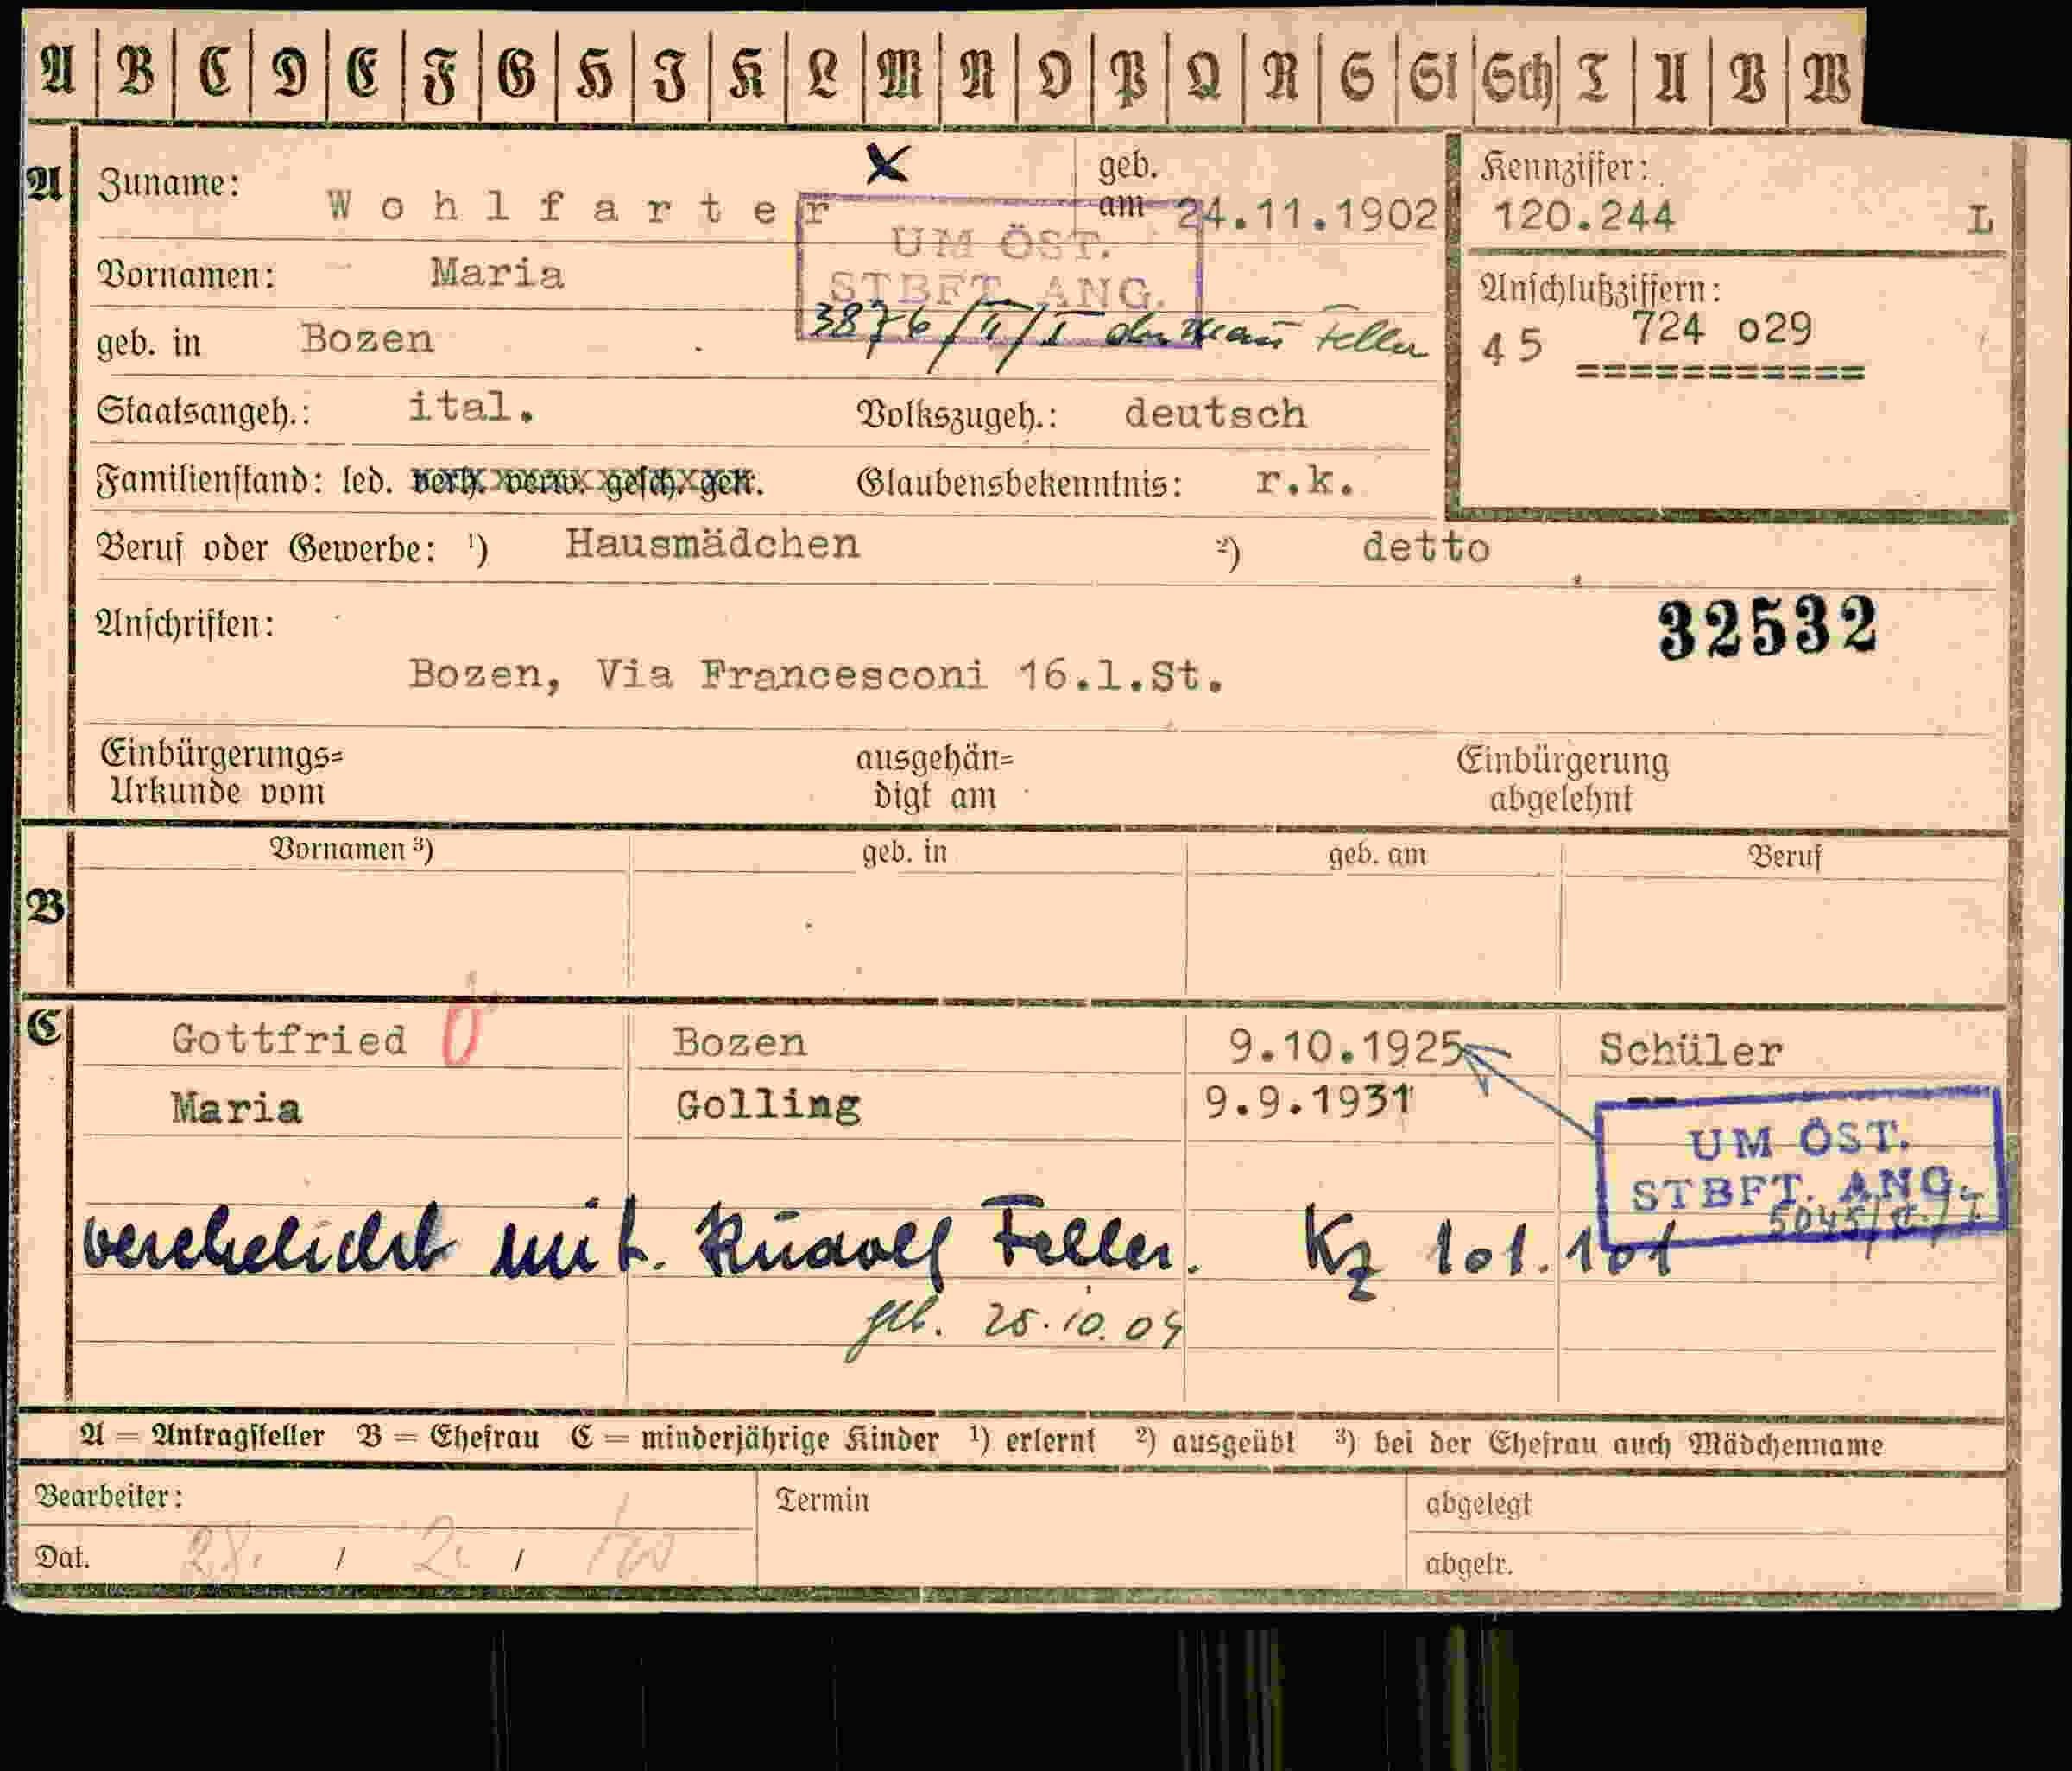 A B C D E F G H J K L M N O P Q R S St Sch T U V W
A Zuname: Wohlfarter geb. am 24.11.1902
Kennziffer:
120.244 L
UM ÖST.
STBFT. ANG.
3876/II/I Feller
Vornamen: Maria
Anschlußziffern:
45 724 o29
===========
geb. in Bozen
Staatsangeh.: ital. Volkszugeh.: deutsch
Familienstand: led. verh. verw. gesch. getr. Glaubensbekenntnis: r.k.
Beruf oder Gewerbe: ¹) Hausmädchen ²) detto
Anschriften:
32532
Bozen, Via Francesconi 16.l.St.
Einbürgerungs=
Urkunde vom
ausgehän=
digt am
Einbürgerung
abgelehnt
B Vornamen ³) geb. in geb. am Beruf
C Gottfried Bozen 9.10.1925 Schüler
Maria Golling 9.9.1931 --
UM ÖST.
STBFT. ANG.
verehelicht mit. Rudolf Feller. Kz 101.101
geb. 25.10.04
A = Antragsteller B = Ehefrau C = minderjährige Kinder ¹) erlernt ²) ausgeübt ³) bei der Ehefrau auch Mädchenname
Bearbeiter: Termin abgelegt
Dat. 28. / 2. / abgetr.